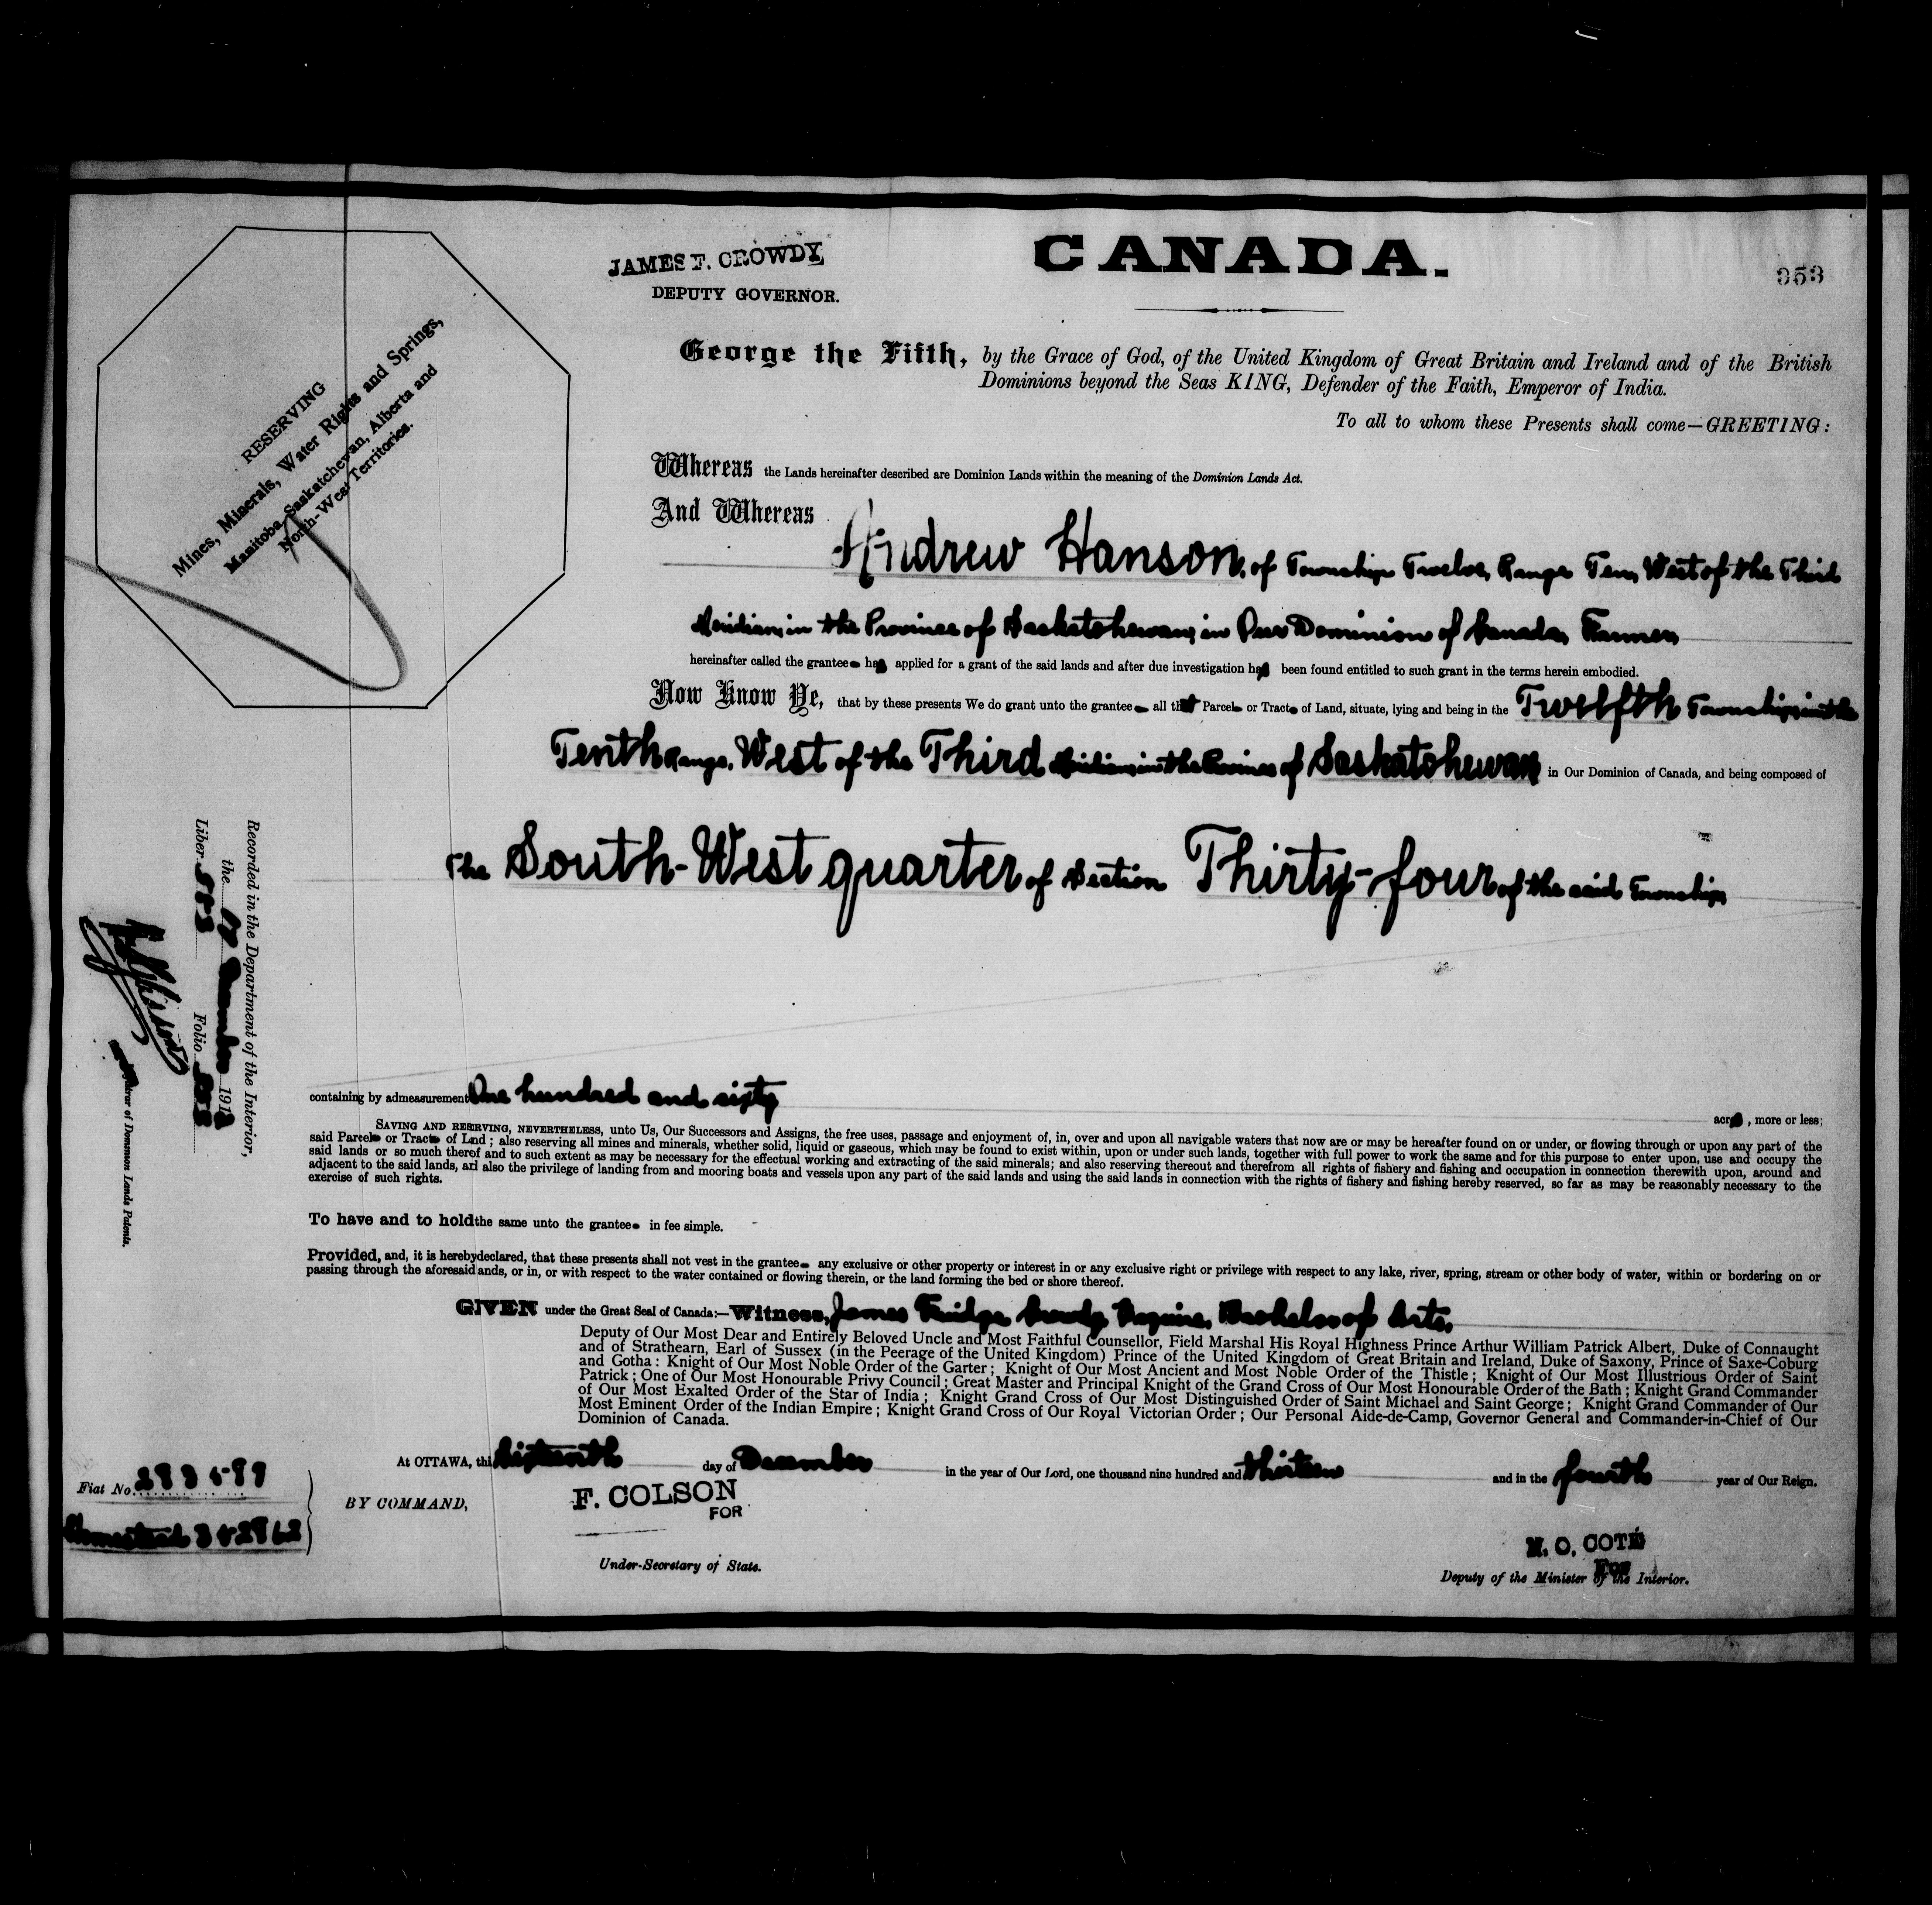 CANADA.
JAMES F. CROWDY,
DEPUTY GOVERNOR.
353
RESERVING
Mines, Minerals, Water Rights and Springs,
Manitoba, Saskatchewan, Alberta and
North-West Territories.
George the Fifth, by the Grace of God, of the United Kingdom of Great Britain and Ireland and of the British
Dominions beyond the Seas KING, Defender of the Faith, Emperor of India.
To all to whom these Presents shall come—GREETING:
Whereas the Lands hereinafter described are Dominion Lands within the meaning of the Dominion Lands Act.
And Whereas
Andrew Hanson, of Township Twelve, Range Ten, West of the Third
Meridian, in the Province of Saskatchewan, in Our Dominion of Canada, Farmer,
hereinafter called the grantee has applied for a grant of the said lands and after due investigation has been found entitled to such grant in the terms herein embodied.
Now Know Ye, that by these presents We do grant unto the grantee all that Parcel or Tract of Land, situate, lying and being in the Twelfth Township, in the
Tenth Range, West of the Third Meridian, in the Province of Saskatchewan in Our Dominion of Canada, and being composed of
The South-West quarter of Section Thirty-four of the said Township
containing by admeasurement One hundred and sixty
acres, more or less;
SAVING AND RESERVING, NEVERTHELESS, unto Us, Our Successors and Assigns, the free uses, passage and enjoyment of, in, over and upon all navigable waters that now are or may be hereafter found on or under, or flowing through or upon any part of the
said Parcel or Tract of Lnd; also reserving all mines and minerals, whether solid, liquid or gaseous, which may be found to exist within, upon or under such lands, together with full power to work the same and for this purpose to enter upon, use and occupy the
said lands or so much therof and to such extent as may be necessary for the effectual working and extracting of the said minerals; and also reserving thereout and therefrom all rights of fishery and fishing and occupation in connection therewith upon, around and
adjacent to the said lands, ad also the privilege of landing from and mooring boats and vessels upon any part of the said lands and using the said lands in connection with the rights of fishery and fishing hereby reserved, so far as may be reasonably necessary to the
exercise of such rights.
To have and to hold the same unto the grantee in fee simple.
Provided, and, it is hereby declared, that these presents shall not vest in the grantee any exclusive or other property or interest in or any exclusive right or privilege with respect to any lake, river, spring, stream or other body of water, within or bordering on or
passing through the aforesaid ands, or in, or with respect to the water contained or flowing therein, or the land forming the bed or shore thereof.
GIVEN under the Great Seal of Canada:—Witness, James Fridge Crowdy, Esquire, Bachelor of Arts,
Deputy of Our Most Dear and Entirely Beloved Uncle and Most Faithful Counsellor, Field Marshal His Royal Highness Prince Arthur William Patrick Albert, Duke of Connaught
and of Strathearn, Earl of Sussex (in the Peerage of the United Kingdom) Prince of the United Kingdom of Great Britain and Ireland, Duke of Saxony, Prince of Saxe-Coburg
and Gotha: Knight of Our Most Noble Order of the Garter; Knight of Our Most Ancient and Most Noble Order of the Thistle; Knight of Our Most Illustrious Order of Saint
Patrick; One of Our Most Honourable Privy Council; Great Master and Principal Knight of the Grand Cross of Our Most Honourable Order of the Bath; Knight Grand Commander
of Our Most Exalted Order of the Star of India; Knight Grand Cross of Our Most Distinguished Order of Saint Michael and Saint George; Knight Grand Commander of Our
Most Eminent Order of the Indian Empire; Knight Grand Cross of Our Royal Victorian Order; Our Personal Aide-de-Camp, Governor General and Commander-in-Chief of Our
Dominion of Canada.
At OTTAWA, this sixteenth day of December in the year of Our Lord, one thousand nine hundred and thirteen and in the fourth year of Our Reign.
BY COMMAND,
F. COLSON
FOR
Under-Secretary of State.
N. O. COTÉ
FOR
Deputy of the Minister of the Interior.
Fiat No.
Homestead
Recorded in the Department of the Interior,
the December 1913
Liber Folio
Registrar of Dominion Lands Patents.